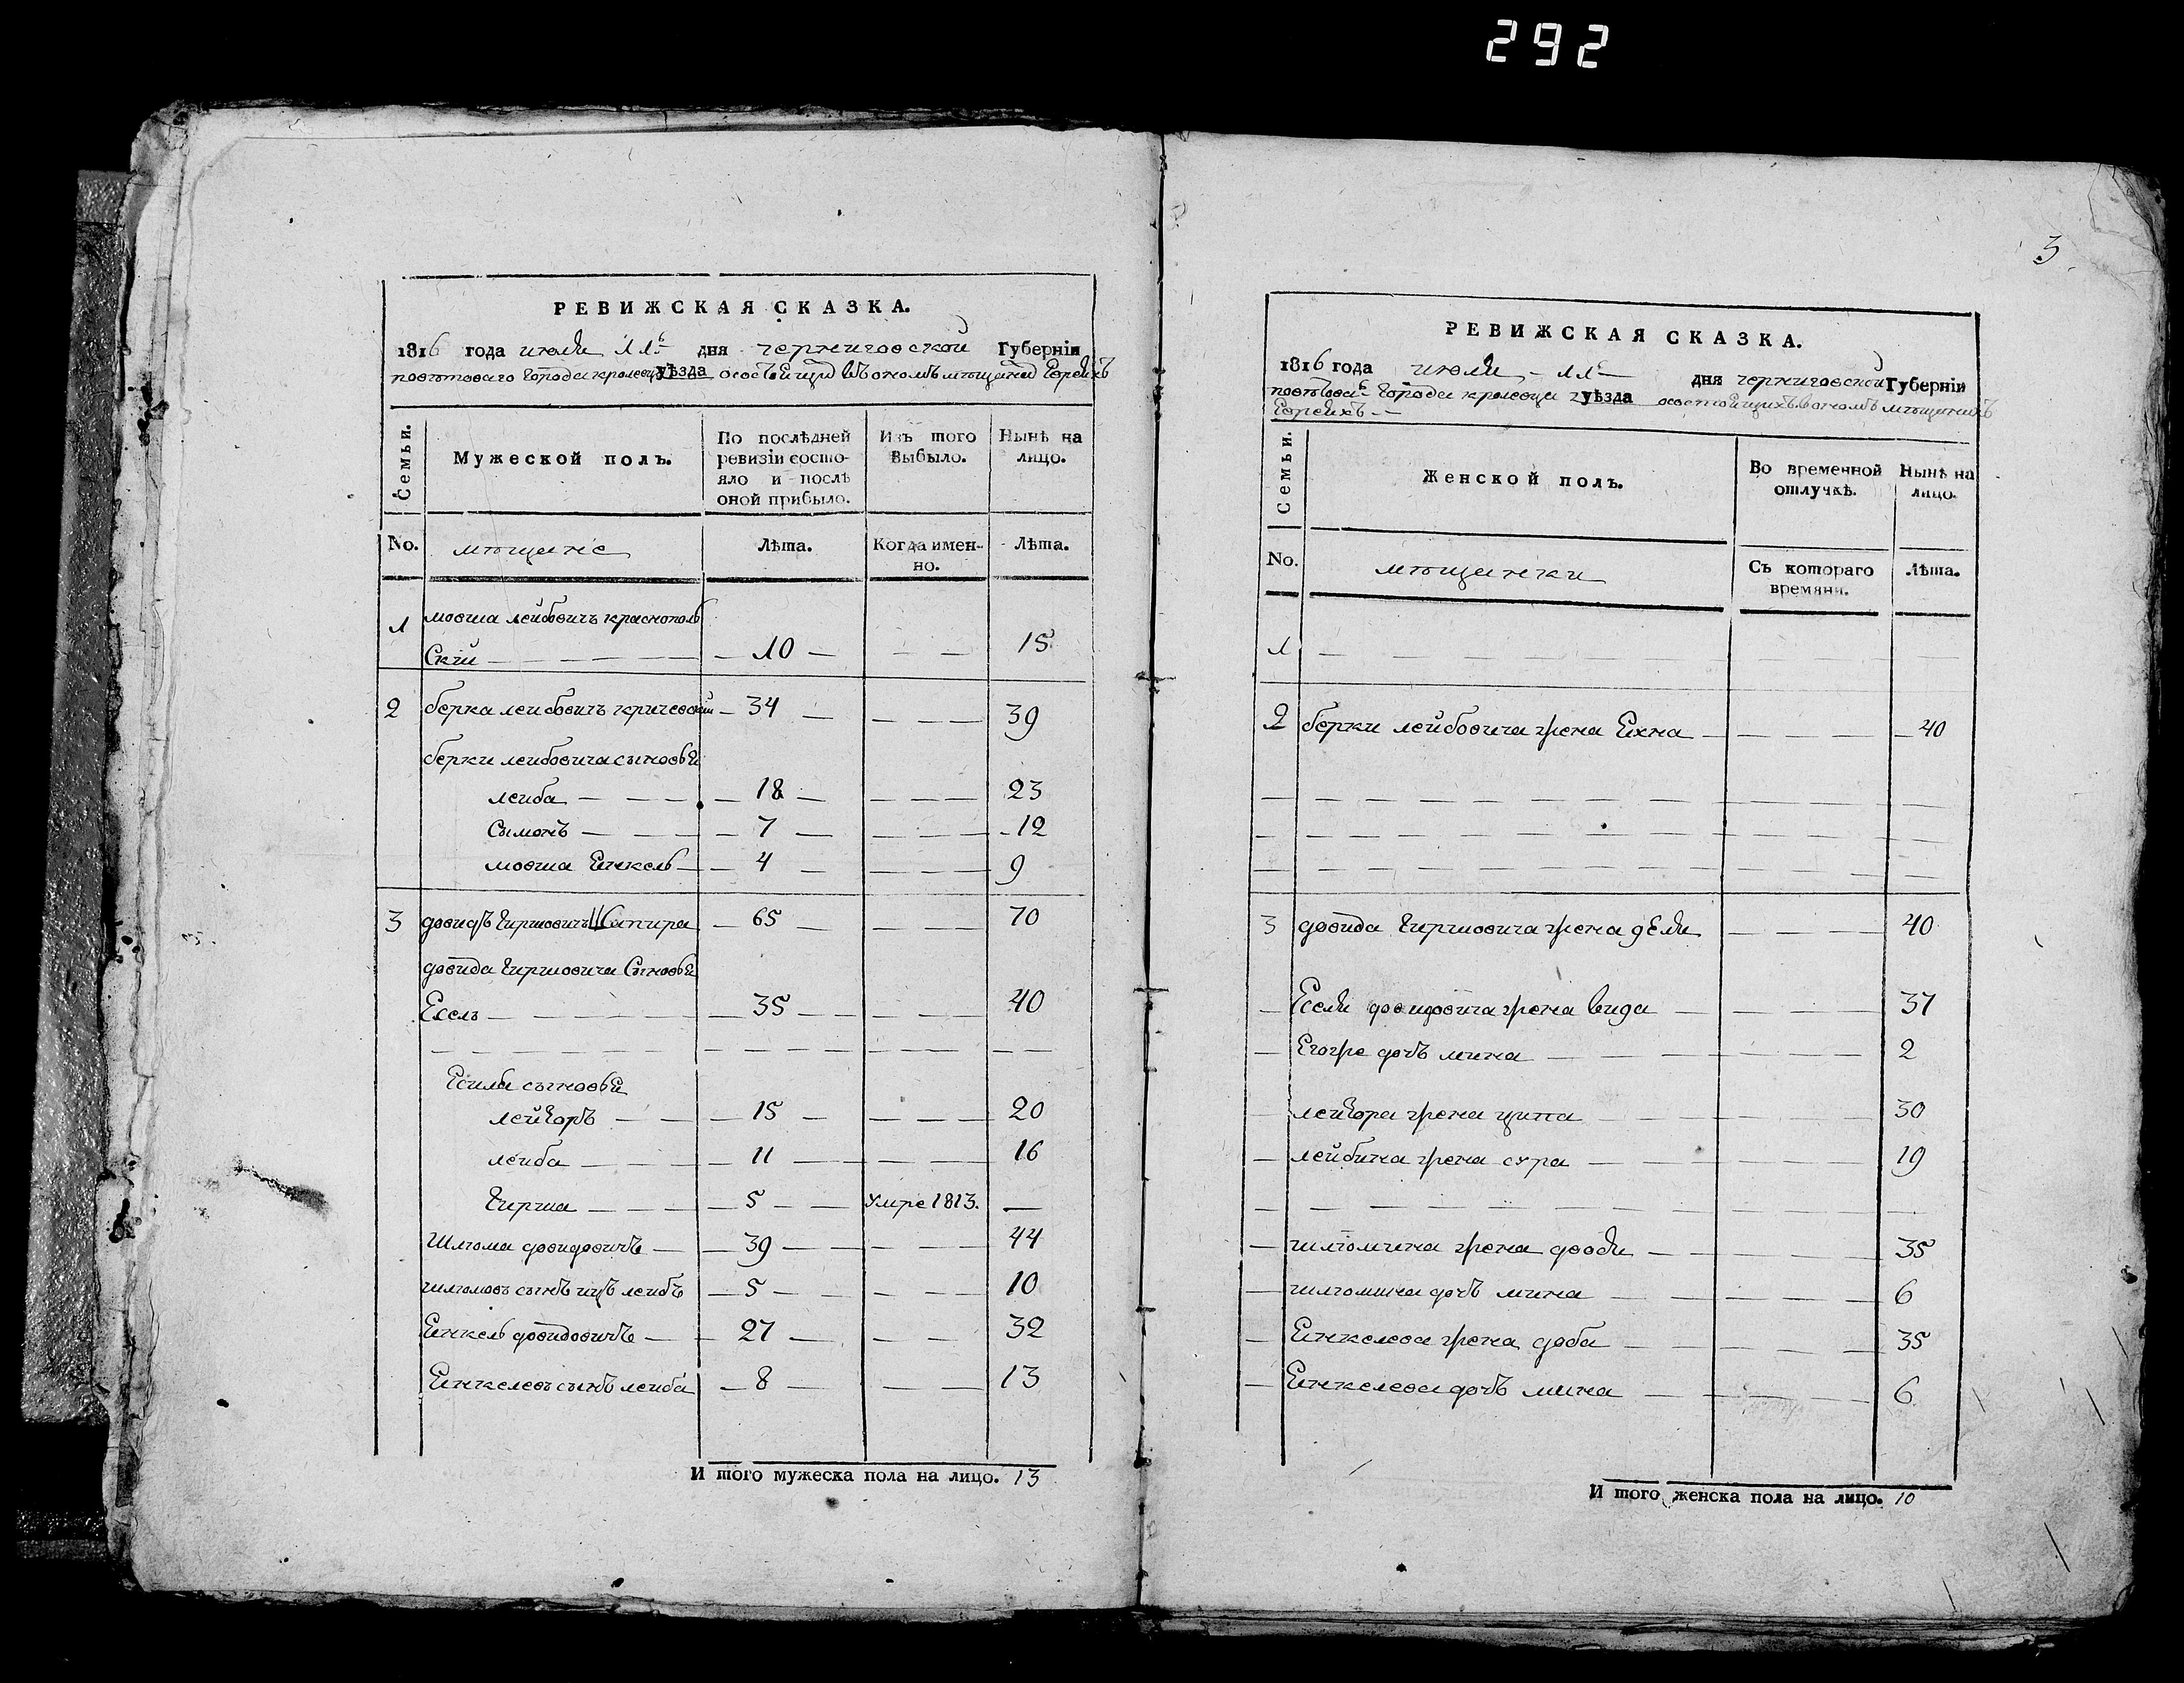 292
РЕВИЖСКАЯ СКАЗКА.
1816 года июля 11го дня черниговской Губерніи
поветоваго города кролевца уѣзда о состоящих въ оном мѣщан Евреяхъ
Семьи.
Мужеской полъ.
По послѣдней ревизіи состояло и послѣ оной прибыло.
Изъ того выбыло.
Нынѣ на лицо.
No. мѣщане Лѣта. Когда именно. Лѣта.
1 мовша лейбовичъ краснополь
ский — 10 — — — 15
2 берка лейбовичъ кричевский — 34 — — — — 39
берки лейбовича сыновья
лейба — — — 18 — — — — 23
Сымонъ — — — 7 — — — — 12
мовша Янкель — — 4 — — — — 9
3 довидъ гиршовичъ Шапира — 65 — — — — 70
довида гиршовича Сыновья
Есель — — — 35 — — — — 40
Есиля сыновья
лейзоръ — — — 15 — — — — 20
лейба — — — 11 — — — — 16
гирша — — — 5 — — Умре 1813. —
Шлома довидовичъ — — 39 — — — — 44
шломовъ сынъ ицъ лейбъ — 5 — — — — 10
Янкель довидовичъ — — 27 — — — 32
Янкелевъ сынъ лейба — 8 — — — 13
И того мужеска пола на лицо. 13
3
РЕВИЖСКАЯ СКАЗКА.
1816 года июля 11го дня черниговской Губерніи
поветоваго города кролевца уѣзда о состоящихъ в ономъ мѣщанкахъ
Евреяхъ —
Семьи.
Женской полъ.
Во временной отлучкѣ.
Нынѣ на лицо.
No. мѣщанки Съ котораго времяни. Лѣта.
1 — — — — —
2 берки лейбовича жена Ихна — — — — 40
3 довида гиршовича жена дЕля — — — 40
— Еселя довидовича жена вида — — — — 37
— Егоже дочъ мина — — — 2
лейзора жена ципа — — — 30
— лейбина жена сура — — — 19
— шломина жена двойля — — — 35
— шломина дочъ мина — — — 6
— Янкелева жена доба — — — 35
— Янкелева дочъ мина — — — 6
И того женска пола на лицо. 10